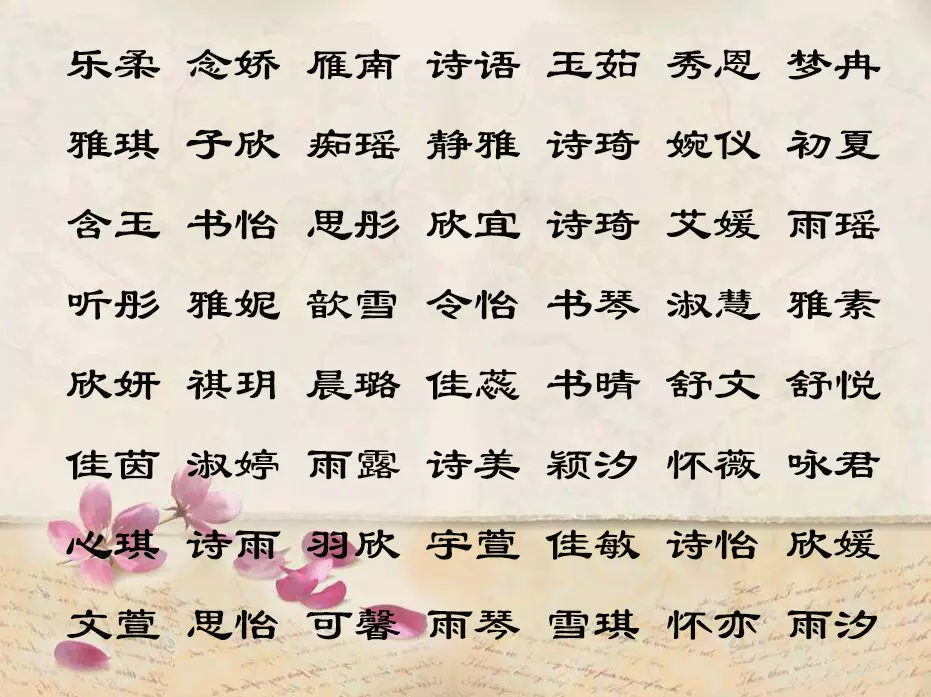 乐柔 念娇 雁南 诗语 玉茹 秀恩 梦冉
雅琪 子欣 痴瑶 静雅 诗琦 婉仪 初夏
含玉 书怡 思彤 欣宜 诗琦 艾媛 雨瑶
听彤 雅妮 歆雪 令怡 书琴 淑慧 雅素
欣妍 祺玥 晨璐 佳蕊 书晴 舒文 舒悦
佳茵 淑婷 雨露 诗美 颖汐 怀薇 咏君
心琪 诗雨 羽欣 宇萱 佳敏 诗怡 欣媛
文萱 思怡 可馨 雨琴 雪琪 怀亦 雨汐